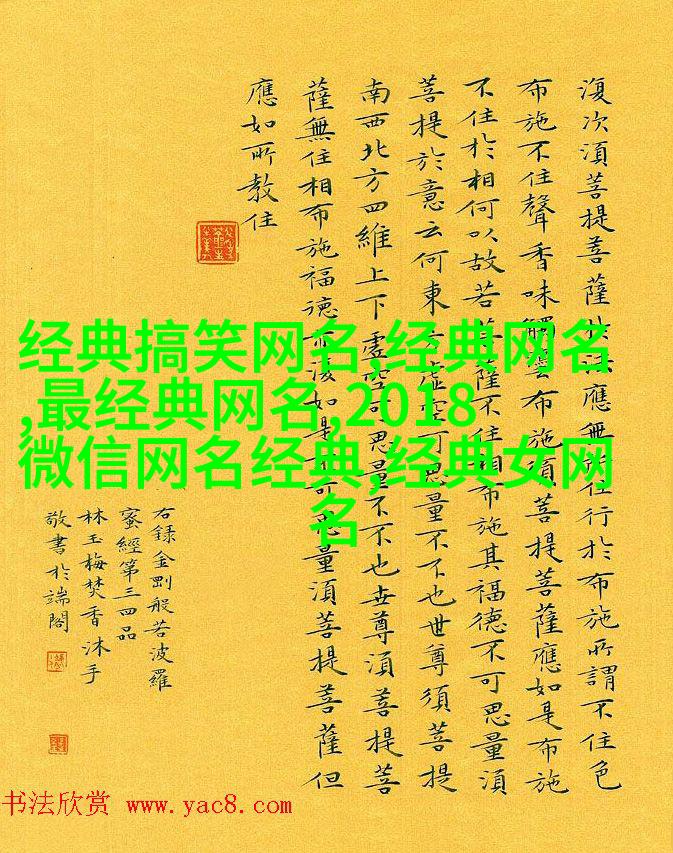 经典搞笑网名,经典网名
,最经典网名,2018
微信网名经典,经典女网
名
復次湏菩提菩薩於法應無所住行於布施所謂不住色
布施不住聲香味觸法布施須菩提菩薩應如是布施
不住於相何以故若菩薩不住相布施其福德不可思量湏
菩提於意云何東方虛空可思量不不也世尊須菩提
南西北方四維上下虛空可思量不不也世尊湏菩提菩
薩無住相布施福德亦復如是不可思量湏菩提菩薩但
應如所教住
右錄金剛般若波羅
蜜經第三四品
林玉梅焚香沐手
敬書於端閣
书法欣赏 www.yac8.com